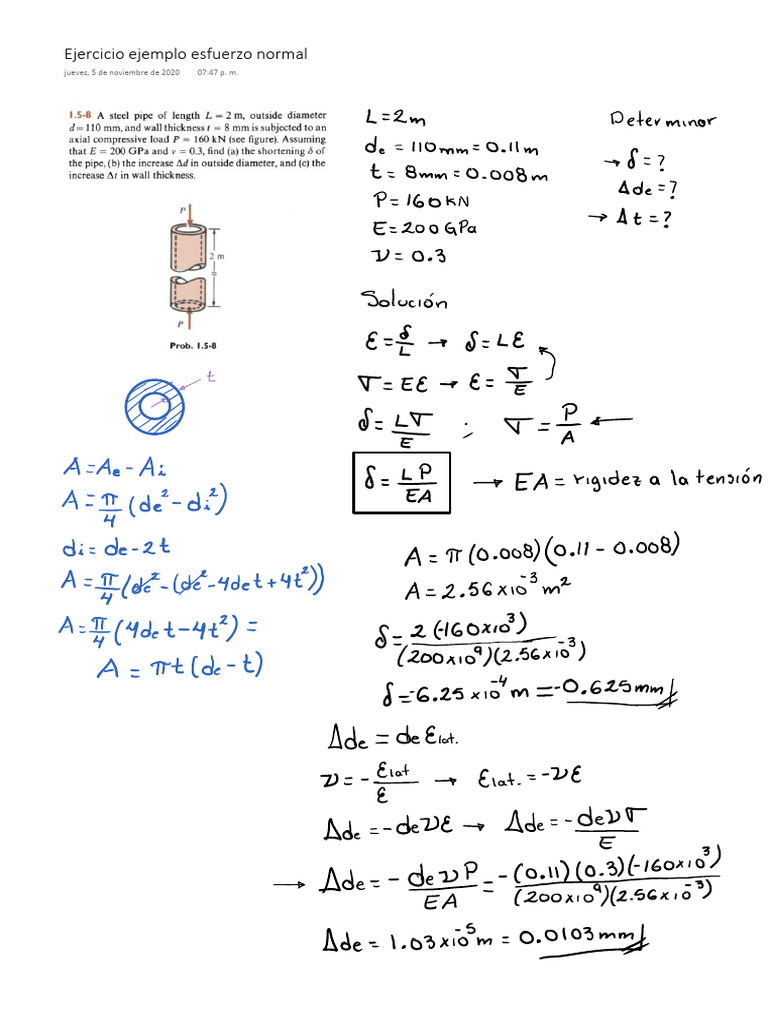 Ejercicio ejemplo esfuerzo normal
jueves, 5 de noviembre de 2020 07:47 p. m.
1.5-8 A steel pipe of length L = 2 m, outside diameter
d = 110 mm, and wall thickness t = 8 mm is subjected to an
axial compressive load P = 160 kN (see figure). Assuming
that E = 200 GPa and ν = 0.3, find (a) the shortening δ of
the pipe, (b) the increase Δd in outside diameter, and (c) the
increase Δt in wall thickness.
P
2 m
P
Prob. 1.5-8
t
A = Ae - Ai
A = π/4 (de² - di²)
di = de - 2t
A = π/4 (de² - (de² - 4det + 4t²))
A = π/4 (4det - 4t²) =
A = πt (de - t)
L = 2m
de = 110mm = 0.11m
t = 8mm = 0.008m
P = 160KN
E = 200GPa
ν = 0.3
Determinar
→ δ = ?
Δde = ?
→ Δt = ?
Solución
ε = δ/L → δ = Lε
σ = Eε → ε = σ/E
δ = Lσ/E ; σ = P/A ←
δ = LP/EA → EA = rigidez a la tensión
A = π(0.008)(0.11 - 0.008)
A = 2.56x10⁻³ m²
δ = 2(-160x10³)/(200x10⁹)(2.56x10⁻³)
δ = -6.25x10⁻⁴ m = -0.625mm
Δde = de εlat.
ν = - εlat/ε → εlat. = -νε
Δde = -deνε → Δde = - deνσ/E
→ Δde = - deνP/EA = -(0.11)(0.3)(-160x10³)/(200x10⁹)(2.56x10⁻³)
Δde = 1.03x10⁻⁵ m = 0.0103mm